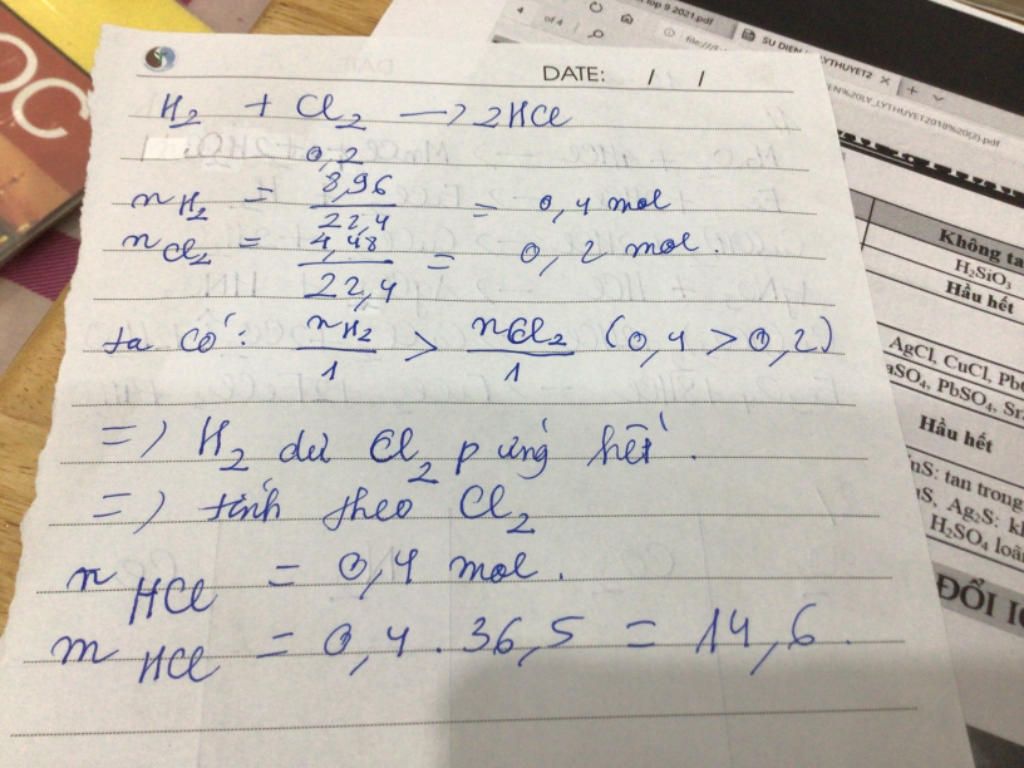 DATE: / /
H2 + Cl2 → 2HCl
0,2
nH2 = 8,96/22,4 = 0,4 mol
nCl2 = 4,48/22,4 = 0,2 mol.
ta có: nH2/1 > nCl2/1 (0,4 > 0,2)
=) H2 dư Cl2 p ứng hết.
=) tính theo Cl2
nHCl = 0,4 mol.
mHCl = 0,4 . 36,5 = 14,6.
4 of 4
lop 9 2021.pdf
SU DIEN LYTHUYET2
file:///
EN%20LY_LYTHUYET2018%20(2).pdf
Không ta
H2SiO3
Hầu hết
AgCl, CuCl, Pb
aSO4, PbSO4, Sr
Hầu hết
nS: tan trong
uS, Ag2S: kh
H2SO4 loãn
ĐỔI I
OC